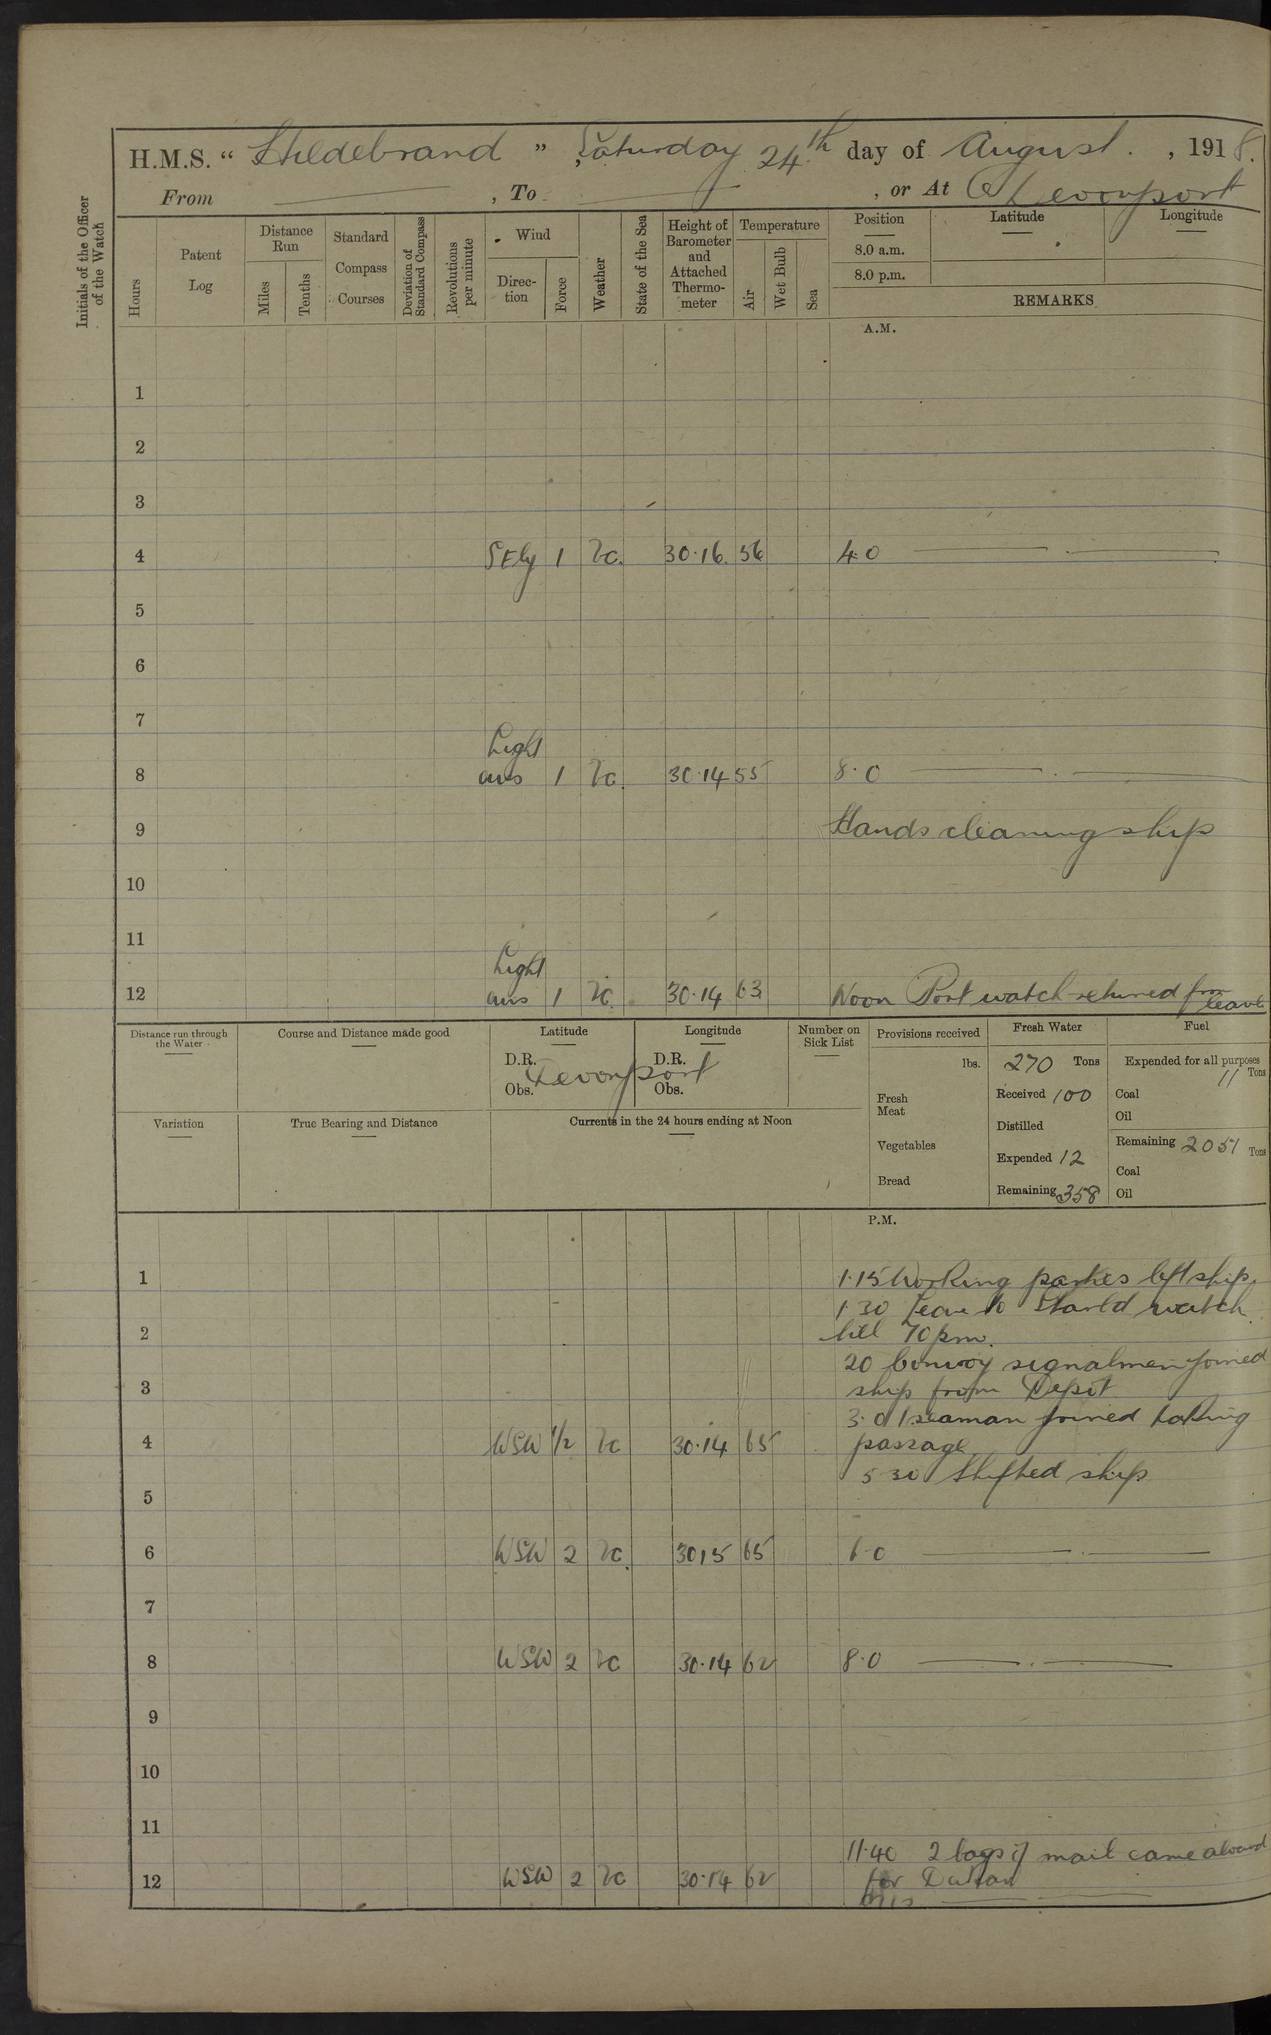 H.M.S. “ Hildebrand ” , Saturday 24th day of August. , 1918.
From , To , or At Devonport
Initials of the Officer of the Watch
Hours
Patent Log
Distance Run
Miles
Tenths
Standard Compass Courses
Deviation of Standard Compass
Revolutions per minute
Wind
Direction
Force
Weather
State of the Sea
Height of Barometer and Attached Thermometer
Temperature
Air
Wet Bulb
Sea
Position Latitude Longitude
8.0 a.m.
8.0 p.m.
REMARKS
A.M.
1
2
3
4 SEly 1 bc. 30.16. 56 4.0
5
6
7
Light
8 airs 1 bc. 30.14 55 8.0
9 Hands cleaning ship
10
11
Light
12 airs 1 bc. 30.14 63 Noon Port watch returned from leave
Distance run through the Water
Course and Distance made good
Latitude
D.R.
Obs.
Devonport
Longitude
D.R.
Obs.
Number on Sick List
Provisions received
lbs.
Fresh Meat
Vegetables
Bread
Fresh Water
270 Tons
Received 100
Distilled
Expended 12
Remaining 358
Fuel
Expended for all purposes
11 Tons
Coal
Oil
Remaining 2051 Tons
Coal
Oil
Variation
True Bearing and Distance
Currents in the 24 hours ending at Noon
P.M.
1 1.15 Working parties left ship.
1 30 Leave to Starbd watch
2 till 7 0 pm.
20 Convoy signalmen joined
3 ship from Depot
3.0 1 seaman joined taking
4 WSW 1/2 bc 30.14 65 passage
5 30 Shifted ship
5
6 WSW 2 bc. 30 15 65 6.0
7
8 WSW 2 bc 30.14 62 8.0
9
10
11
11.40 2 bags of mail came aboard
12 WSW 2 bc 30.14 62 for Dakar